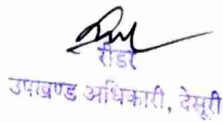 रीडर
उपखण्ड अधिकारी, देसूरी